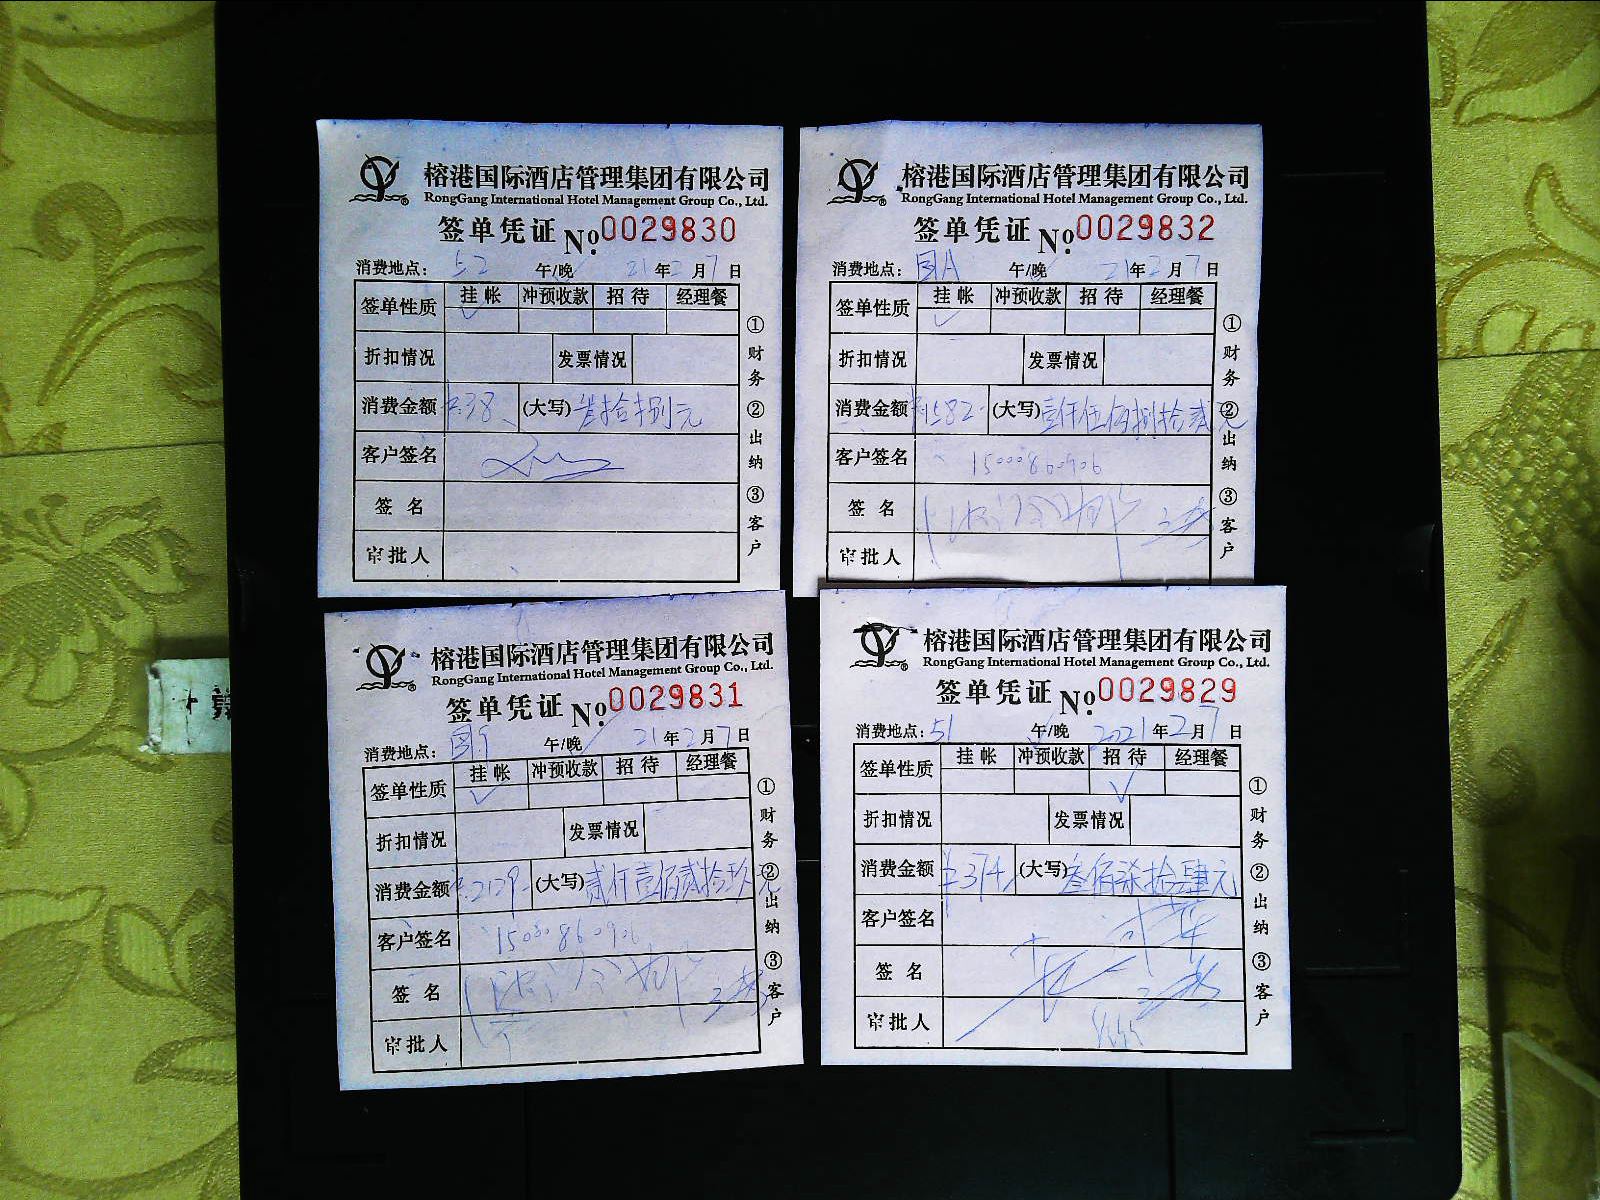 榕港国际酒店管理集团有限公司
RongGang International Hotel Management Group Co., Ltd.
签单凭证 No. 0029830
消费地点： 52 午/晚 21 年 2 月 7 日
签单性质 挂帐 冲预收款 招待 经理餐
折扣情况 发票情况
消费金额 ¥38 (大写) 叁拾捌元
客户签名
签名
审批人
①财务 ②出纳 ③客户
榕港国际酒店管理集团有限公司
RongGang International Hotel Management Group Co., Ltd.
签单凭证 No. 0029832
消费地点： 午/晚 21 年 2 月 7 日
签单性质 挂帐 冲预收款 招待 经理餐
折扣情况 发票情况
消费金额 ¥1582 (大写) 壹仟伍佰捌拾贰元
客户签名 15000860906
签名
审批人
①财务 ②出纳 ③客户
榕港国际酒店管理集团有限公司
RongGang International Hotel Management Group Co., Ltd.
签单凭证 No. 0029831
消费地点： 午/晚 21 年 2 月 7 日
签单性质 挂帐 冲预收款 招待 经理餐
折扣情况 发票情况
消费金额 ¥2129 (大写) 贰仟壹佰贰拾玖元
客户签名 15000860906
签名
审批人
①财务 ②出纳 ③客户
榕港国际酒店管理集团有限公司
RongGang International Hotel Management Group Co., Ltd.
签单凭证 No. 0029829
消费地点： 51 午/晚 2021 年 2 月 7 日
签单性质 挂帐 冲预收款 招待 经理餐
折扣情况 发票情况
消费金额 ¥374 (大写) 叁佰柒拾肆元
客户签名
签名
审批人
①财务 ②出纳 ③客户